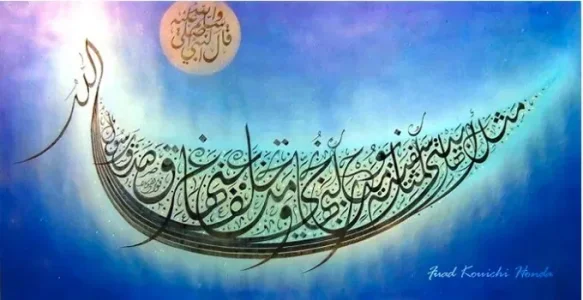 قال النبي صلى الله عليه وآله وسلم
مثل أهل بيتي مثل سفينة نوح من ركبها نجى ومن تخلف عنها غرق صدق رسول الله
Fuad Kouichi Honda